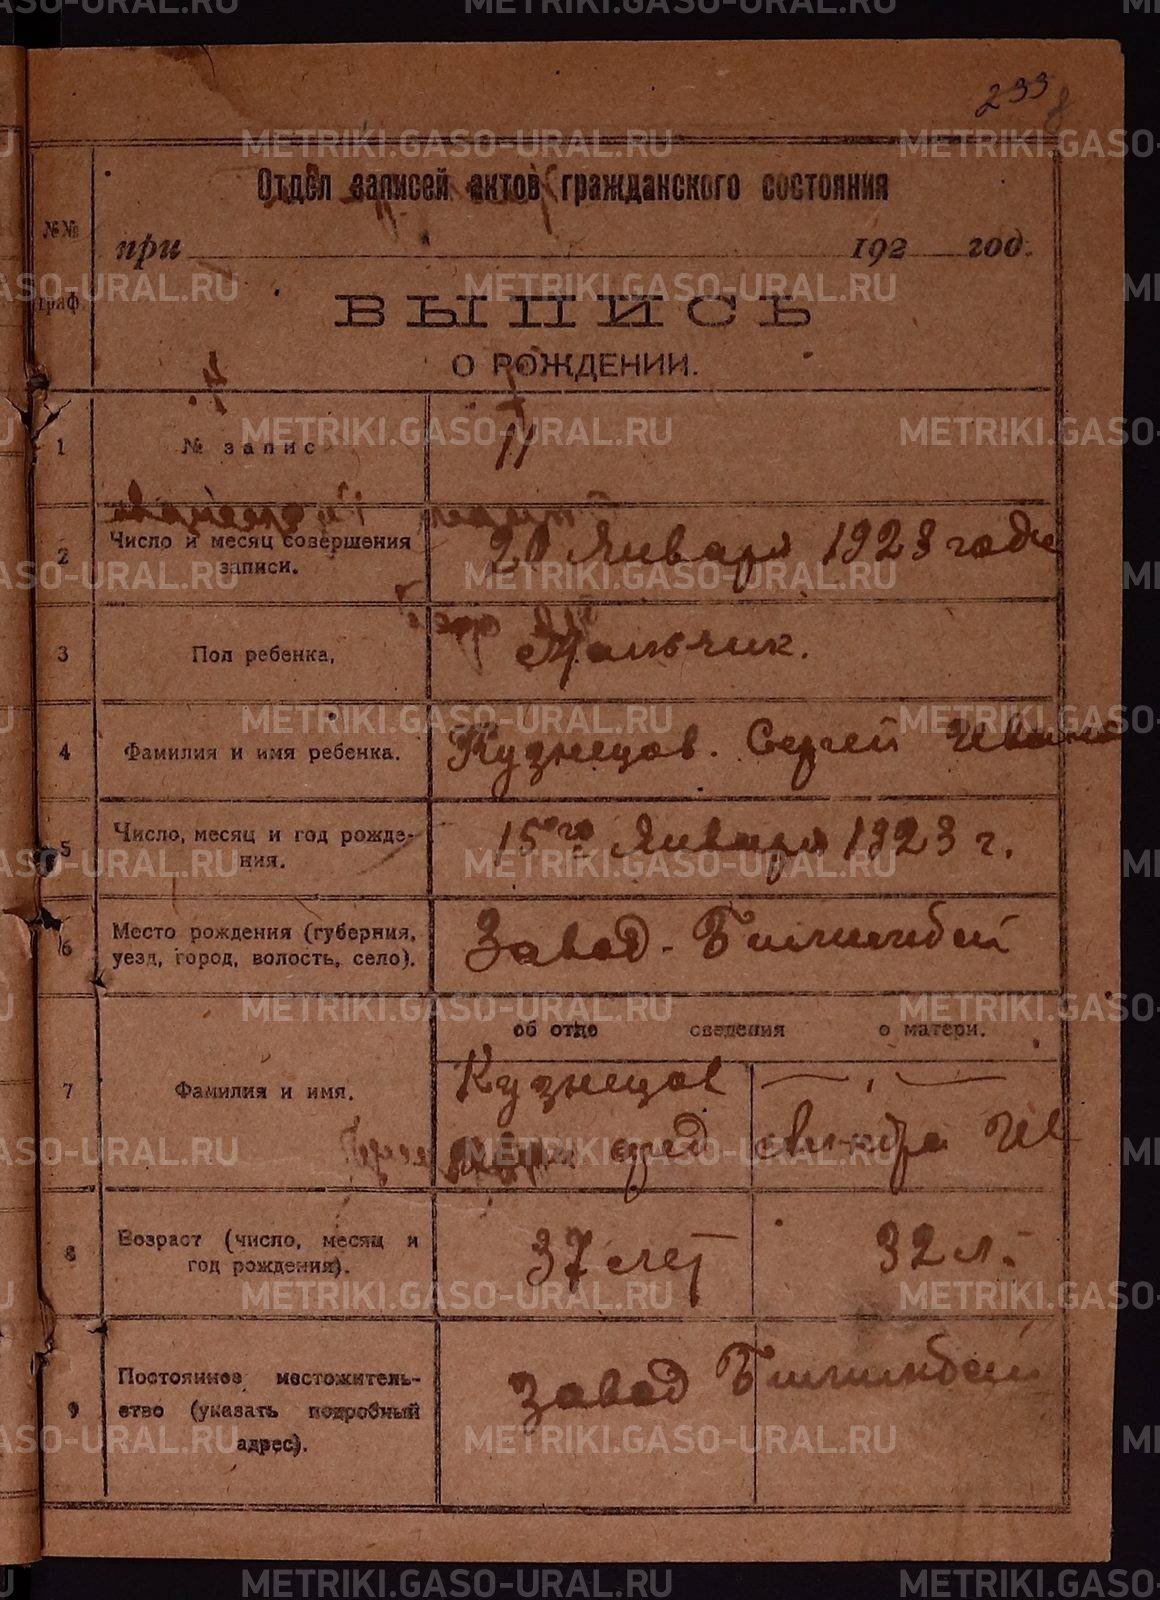 233
Отдел записей актов гражданского состояния
№№
граф.
при 192 год.
ВЫПИСЬ
О РОЖДЕНИИ.
1 № запис 11
2 Число и месяц совершения записи. 20 Января 1923 года
3 Пол ребенка, Мальчик.
4 Фамилия и имя ребенка. Кузнецов. Сергей Ивано
5 Число, месяц и год рождения. 15го Января 1923 г.
6 Место рождения (губерния, уезд, город, волость, село). Завод - Билимбай
об отце сведения о матери.
7 Фамилия и имя. Кузнецов — „ —
8 Возраст (число, месяц и год рождения). 37 лет 32 л.
9 Постоянное местожительство (указать подробный адрес). Завод Билимбай
METRIKI.GASO-URAL.RU